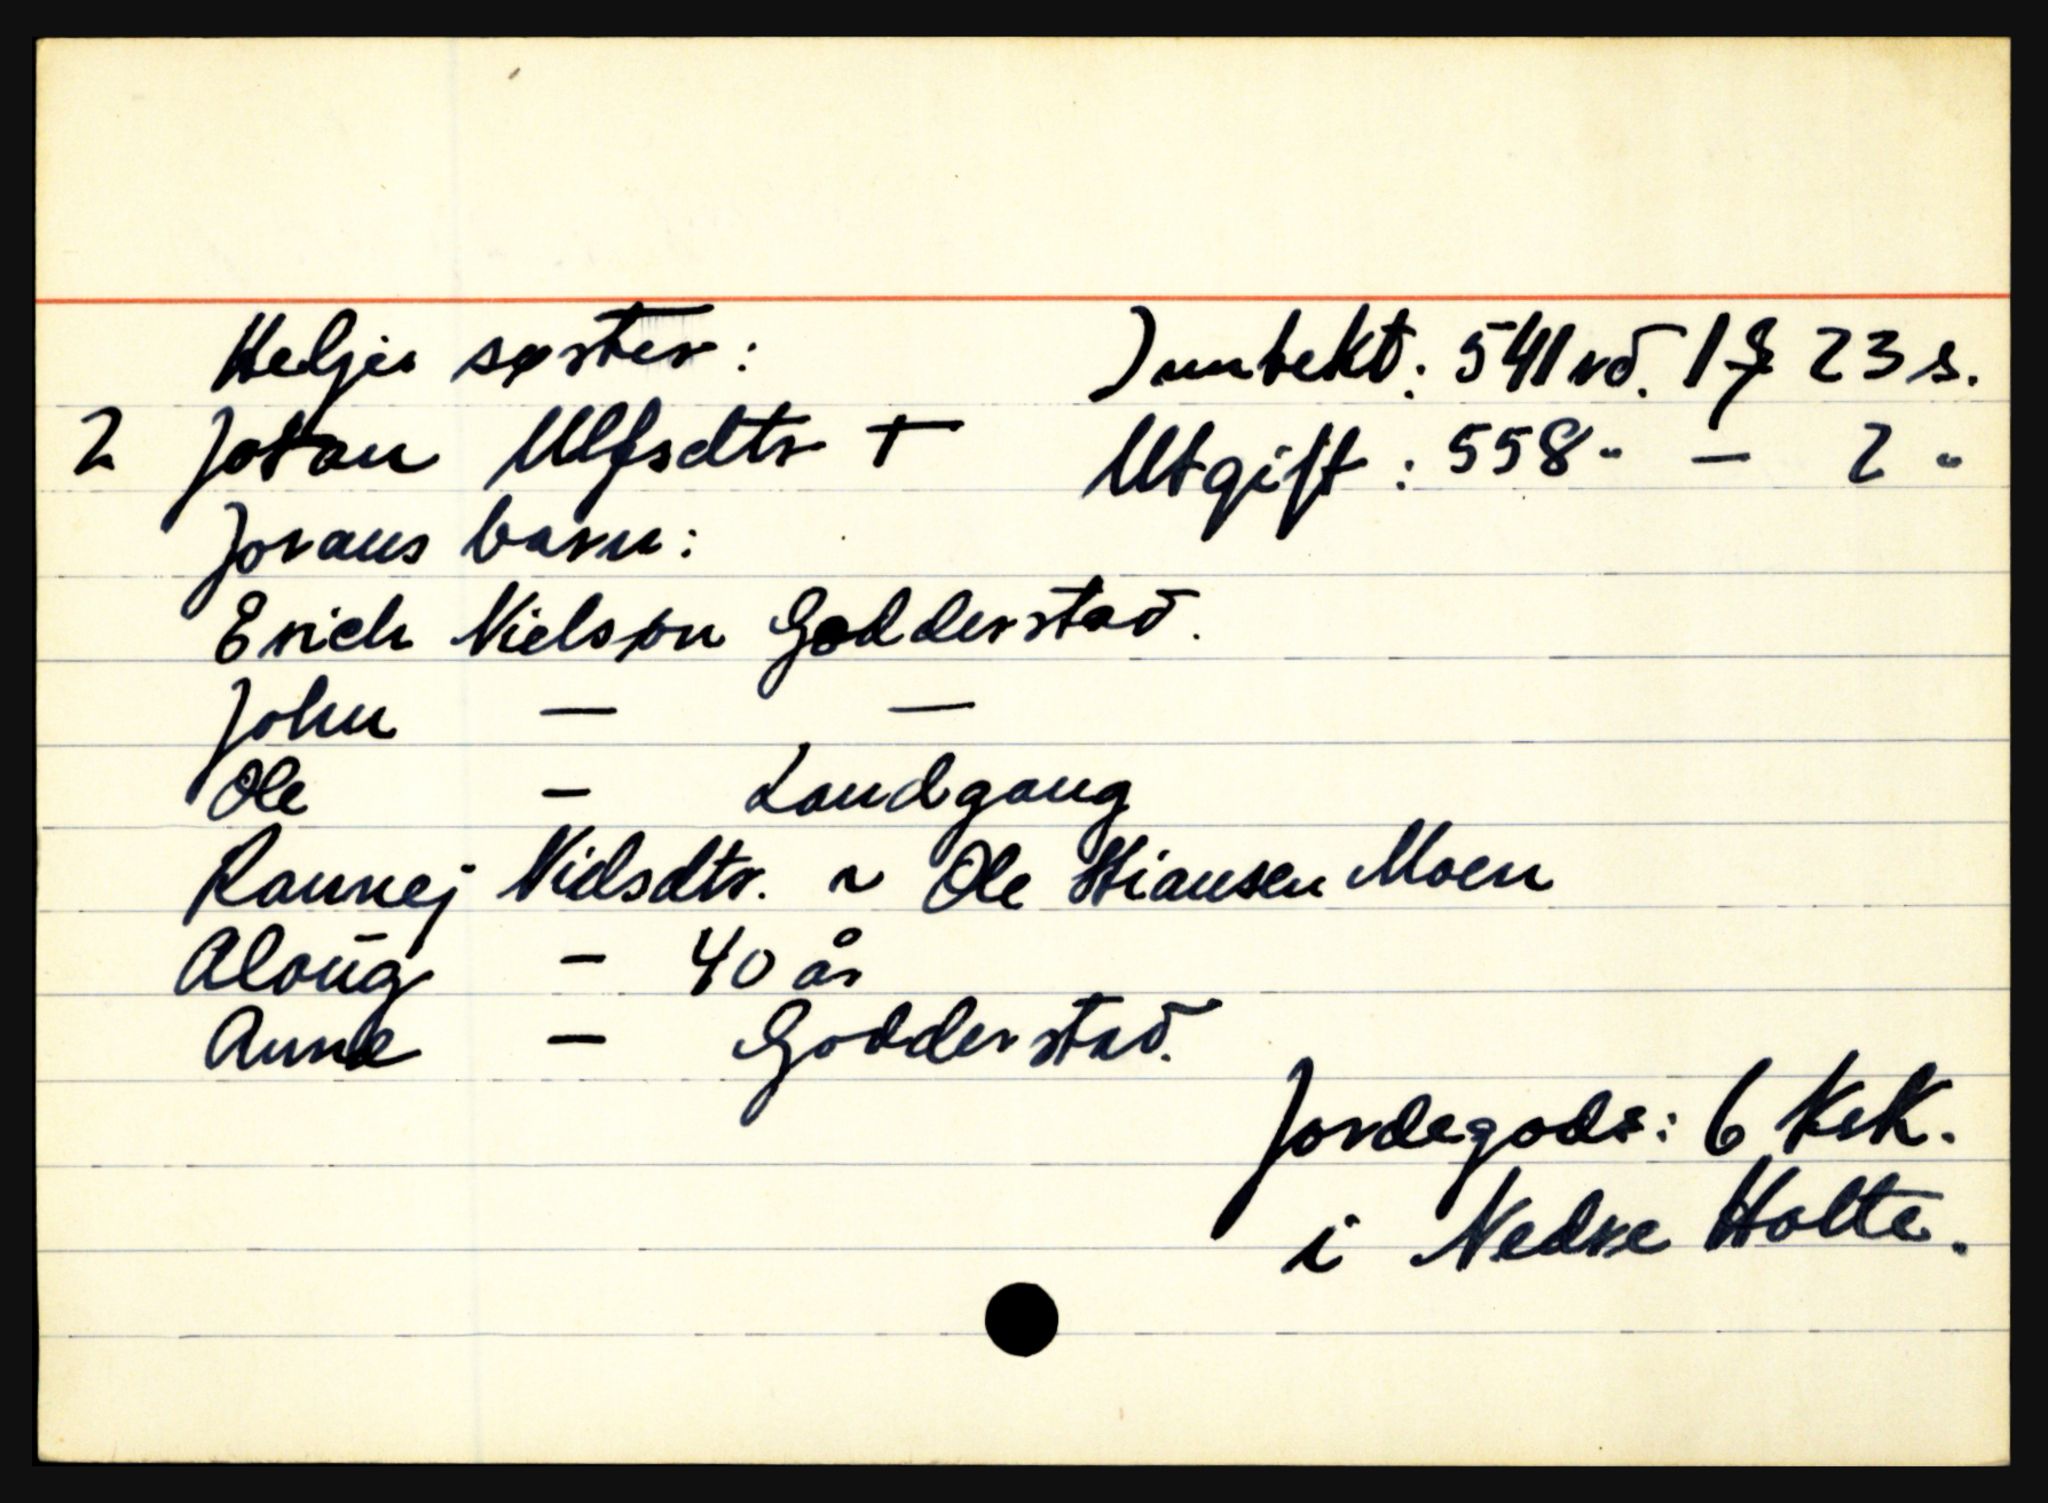 Heljes søster: Inntekt: 541 rd. 1 ʒ 23 s.
2 Joran Ulfsdtr + Utgift: 558 " — 2 "
Jorans barn:
Erich Nielsøn Godderstad.
John — —
Ole — Landgang
Rannej Nielsdtr. ~ Ole Hiansen Moen
Aloug — 40 år
Anne — Godderstad.
Jordegods: 6 Ksk.
i Nedre Holte.